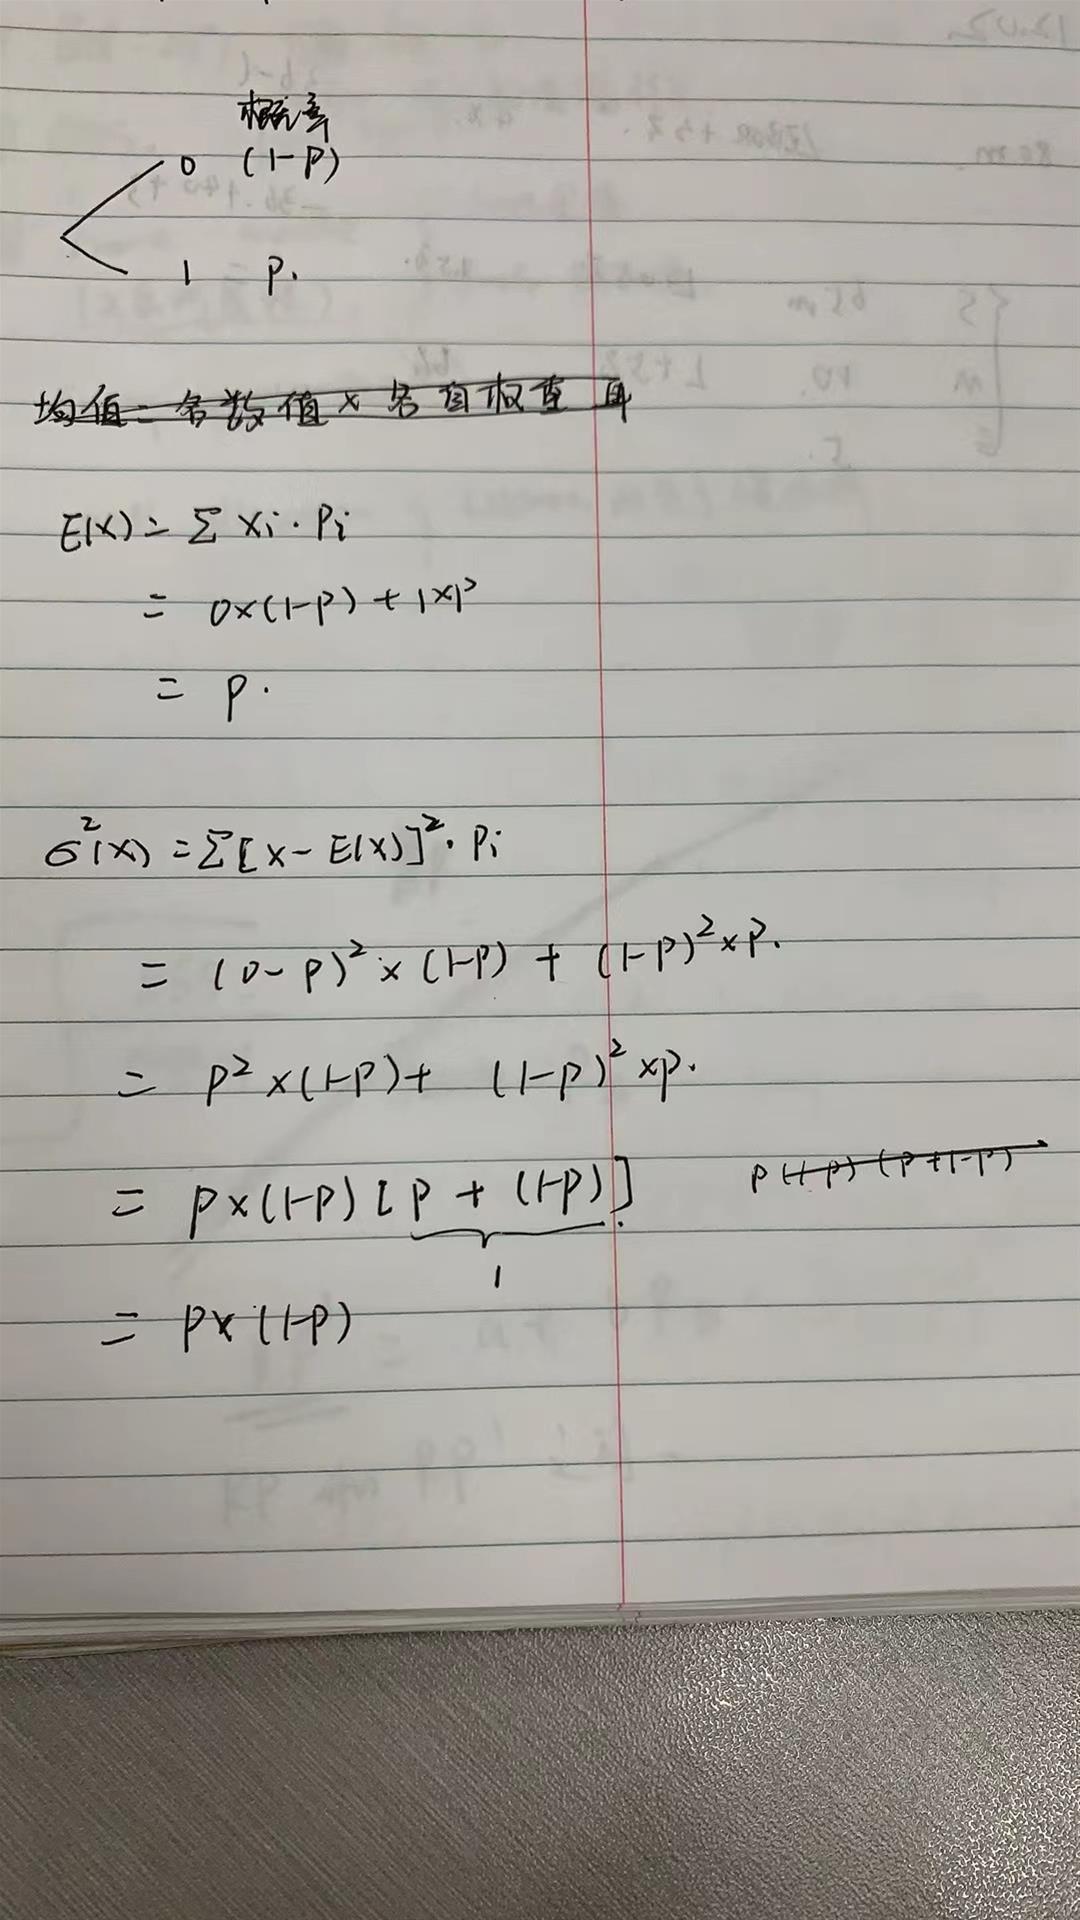 概率
0 (1-P)
1 P.
均值=各数值×各自权重
E(X) = Σ Xi · Pi
= 0×(1-P) + 1×P
= P.
σ²(X) = Σ[X - E(X)]² · Pi
= (0-P)² × (1-P) + (1-P)² × P.
= P² × (1-P) + (1-P)² × P.
= P×(1-P)[P + (1-P)]
P(1-P)(P+1-P)
1
= P×(1-P)